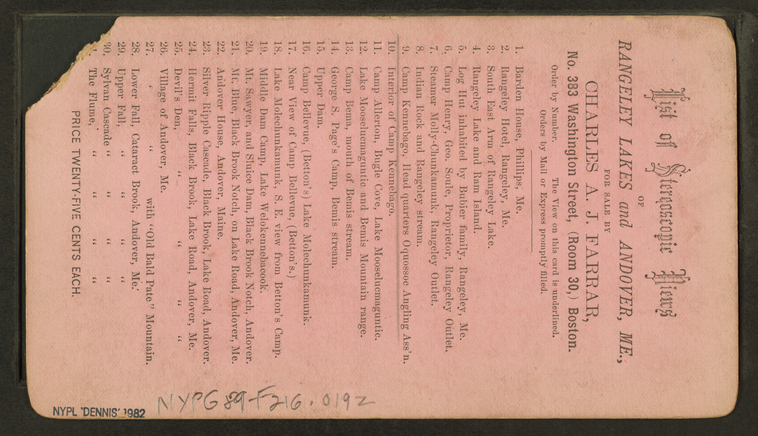 List of Stereoscopic Views
OF
RANGELEY LAKES and ANDOVER, ME.,
FOR SALE BY
CHARLES A. J. FARRAR,
No. 383 Washington Street, (Room 30,) Boston.
Order by Number. The View on this card is underlined.
Orders by Mail or Express promptly filled.
1. Barden House, Phillips, Me.
2. Rangeley Hotel, Rangeley, Me.
3. South East Arm of Rangeley Lake.
4. Rangeley Lake and Ram Island.
5. Log Hut inhabited by Bubier family, Rangeley, Me.
6. Camp Henry, Geo. Soule, Proprietor, Rangeley Outlet.
7. Steamer Molly-Chunkamunk, Rangeley Outlet.
8. Indian Rock and Rangeley stream.
9. Camp Kennebago, Head quarters Oquossoc Angling Ass'n.
10. Interior of Camp Kennebago.
11. Camp Allerton, Bugle Cove, Lake Mooselucmaguntic.
12. Lake Mooselucmaguntic and Bemis Mountain range.
13. Camp Bema, mouth of Bemis stream.
14. George S. Page's Camp, Bemis stream.
15. Upper Dam.
16. Camp Bellevue, (Betton's) Lake Molechunkamunk.
17. Near View of Camp Bellevue, (Betton's.)
18. Lake Molechunkamunk, S. E. view from Betton's Camp.
19. Middle Dam Camp, Lake Welokennebacook.
20. Mt. Sawyer, and Sluice Dam, Black Brook Notch, Andover.
21. Mt. Blue, Black Brook Notch, on Lake Road, Andover, Me.
22. Andover House, Andover, Maine.
23. Silver Ripple Cascade, Black Brook, Lake Road, Andover.
24. Hermit Falls, Black Brook, Lake Road, Andover, Me.
25. Devil's Den, " " " "
26. Village of Andover, Me.
27. " " with "Old Bald Pate" Mountain.
28. Lower Fall, Cataract Brook, Andover, Me.
29. Upper Fall, " " "
30. Sylvan Cascade " " " "
The Flume, " " " "
PRICE TWENTY-FIVE CENTS EACH.
NYPG 89-F216.0192
NYPL 'DENNIS' 1982